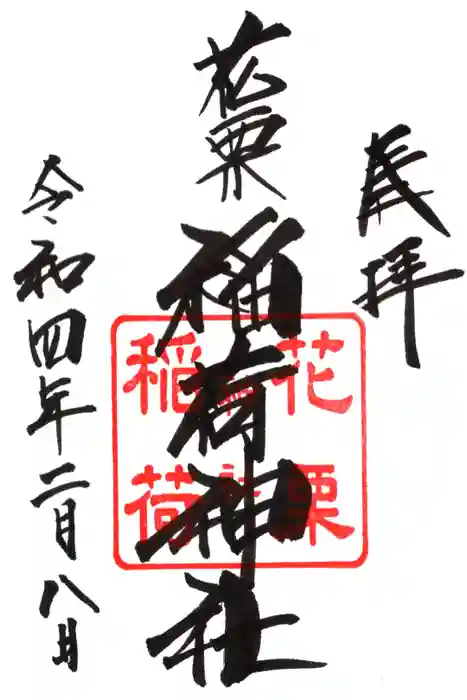 奉拝
花栗
稲荷神社
令和四年二月八日
花栗
神社
稲荷